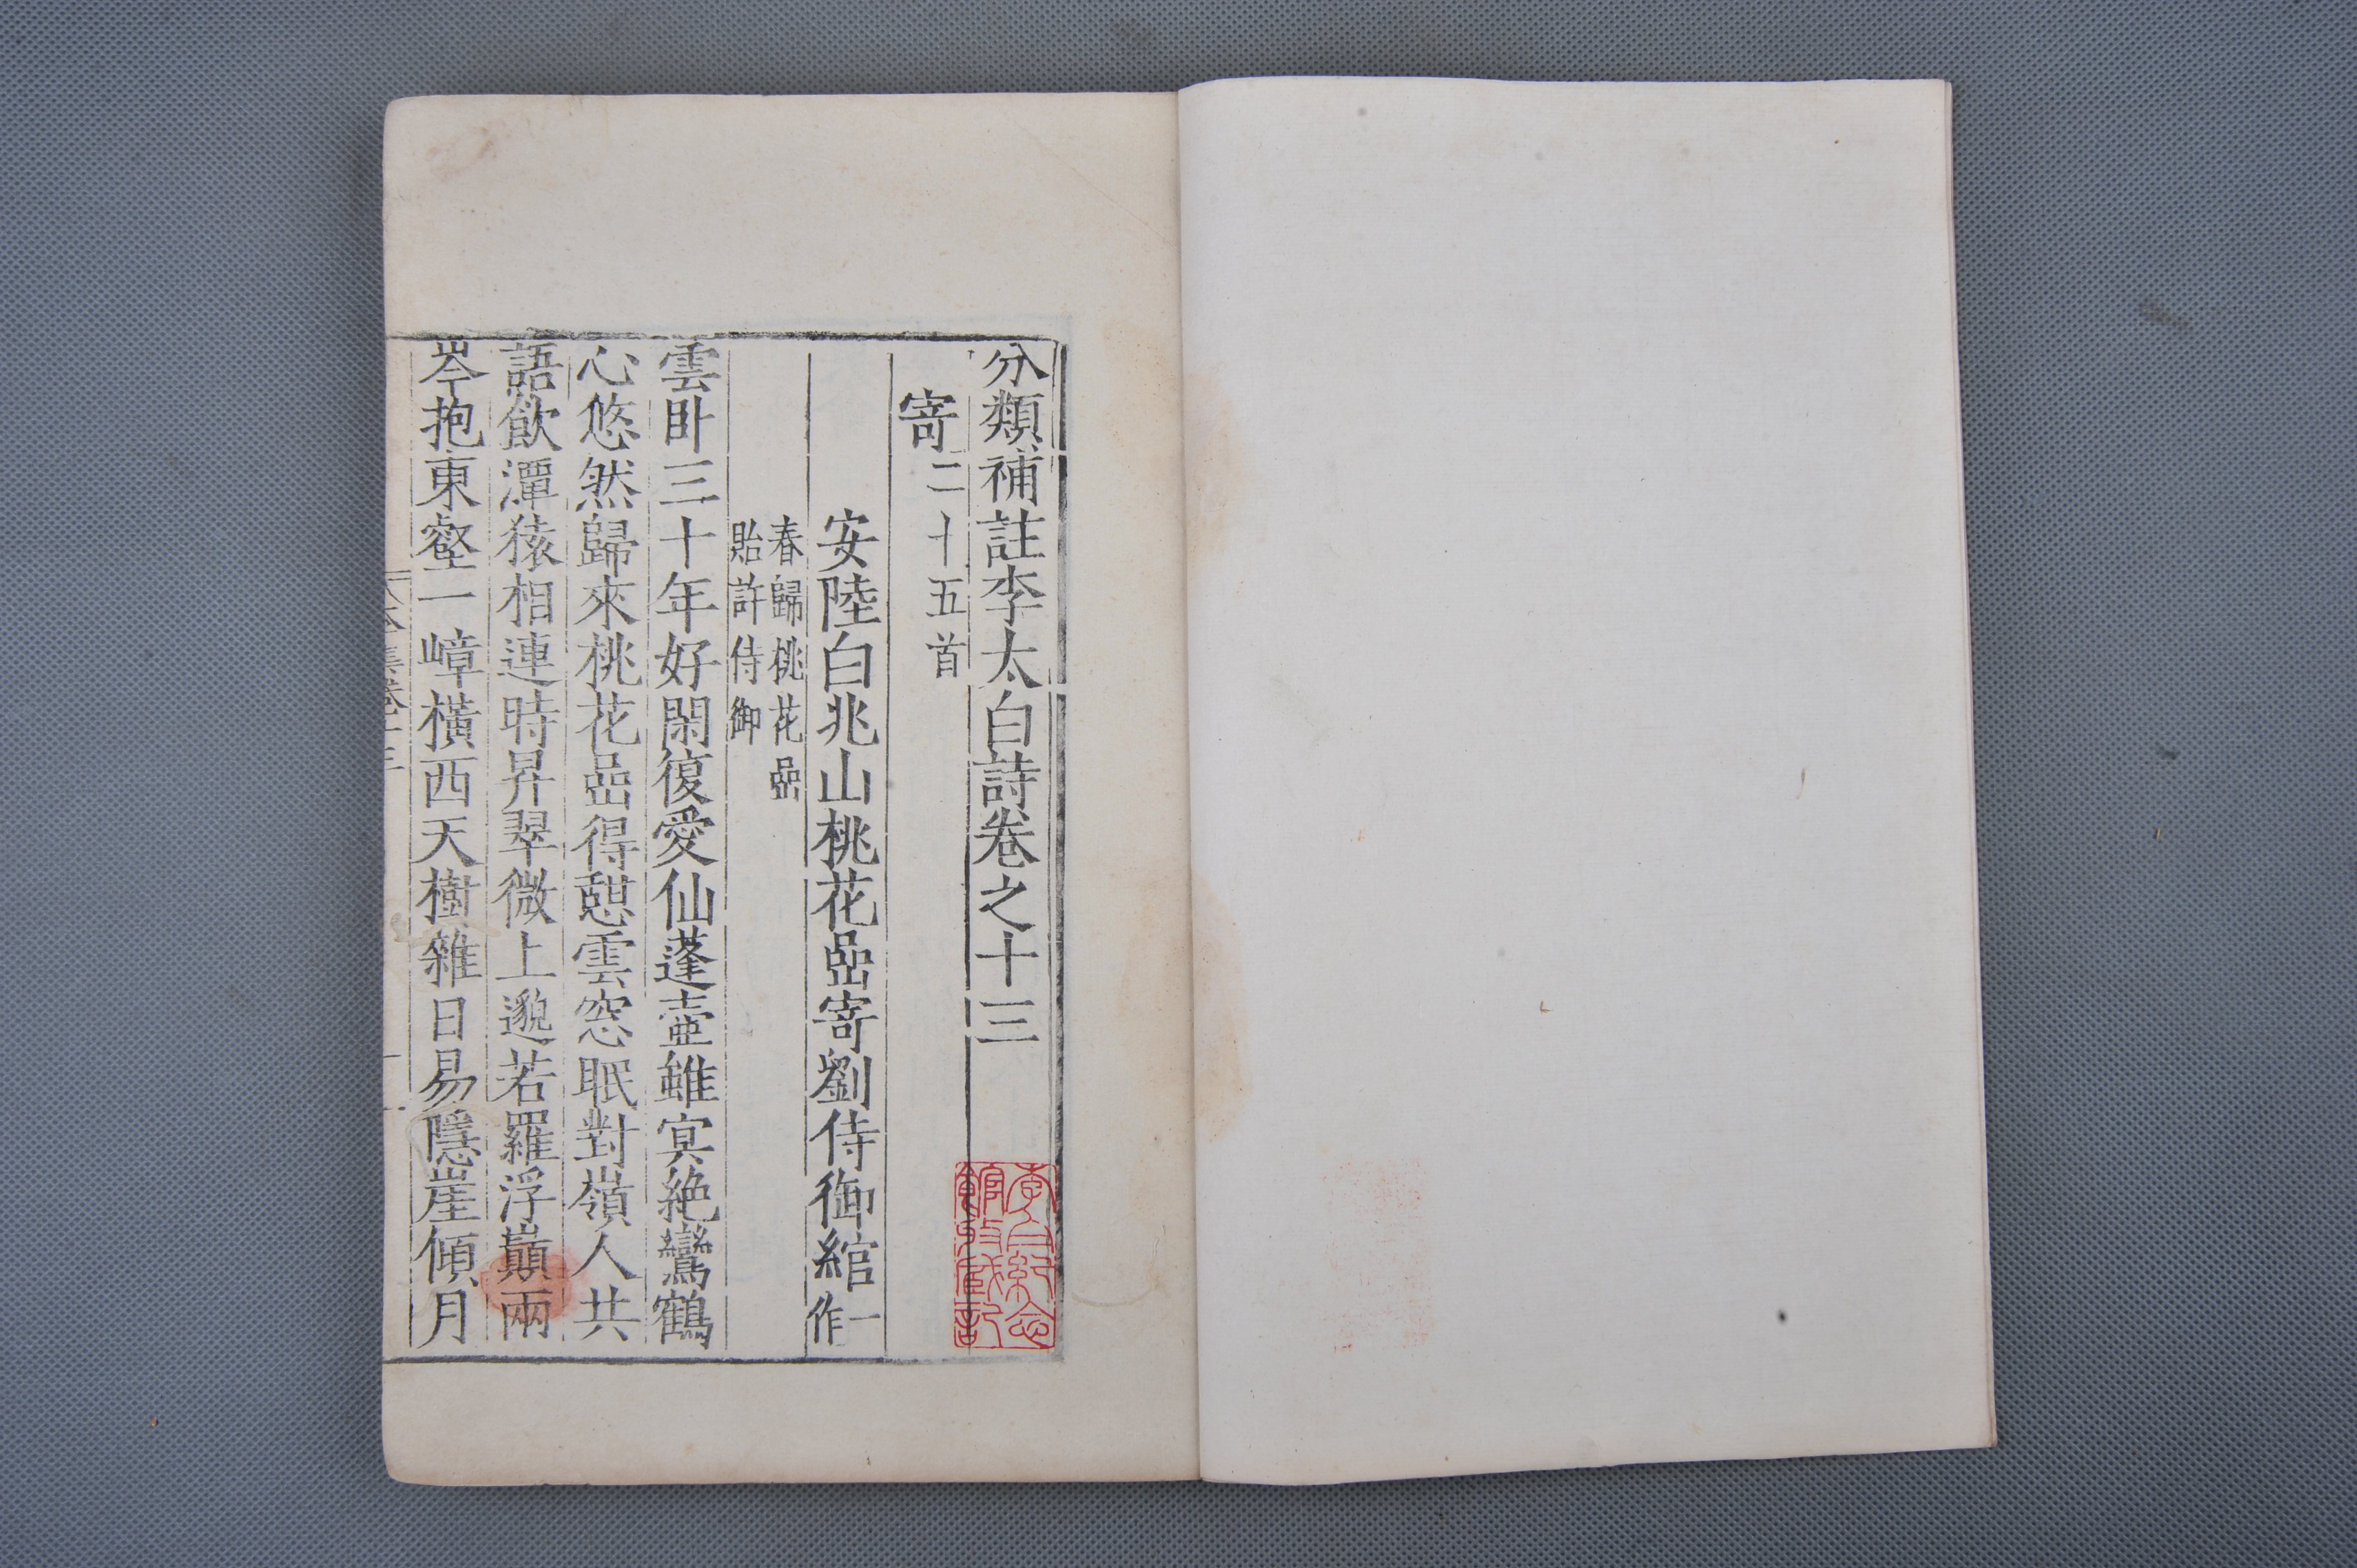 分類補註李太白詩卷之十三
寄二十五首
安陸白兆山桃花嵒寄劉侍御綰一作
春歸桃花嵒
貽許侍御
雲卧三十年好閑復愛仙蓬壺雖㝠絶鸞鶴
心悠然歸來桃花嵒得憇雲窓眠對嶺人共
語飲潭猿相連時昇翠微上邈若羅浮巔兩
岑抱東壑一嶂横西天樹雜日易隱崖傾月
李白紀念
館收藏記